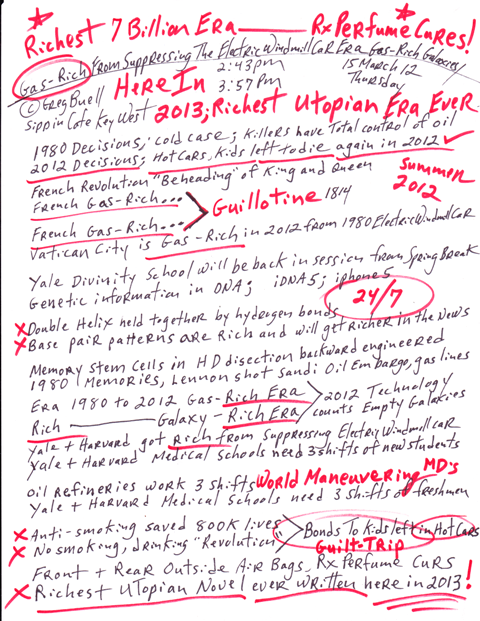 Richest 7 Billion Era — Rx Perfume Cures!
Gas-Rich From Suppressing The Electric Windmill Car Era Gas-Rich Galaxies
© Greg Buell Here In 2:43pm 15 March 12
3:57pm Thursday
Sippin Cafe Key West 2013; Richest Utopian Era Ever
1980 Decisions; cold case; killers have total control of oil
2012 Decisions; Hot Cars, Kids left to die again in 2012 ✓
French Revolution "Beheading" of King and Queen Summer
French Gas-Rich... > Guillotine 1814 2012
French Gas-Rich...
Vatican City is Gas-Rich in 2012 from 1980 Electric Windmill Car
Yale Divinity School will be back in session from Spring Break
Genetic information in DNA; iDNA5; iphone5
24/7
x Double Helix held together by hydrogen bonds
x Base pair patterns are Rich and will get Richer in the News
Memory stem cells in HD disection backward engineered
1980 Memories, Lennon shot sandi Oil Embargo, gas lines
Era 1980 to 2012 Gas-Rich Era > 2012 Technology
Rich — Galaxy-Rich Era counts Empty Galaxies
Yale + Harvard got Rich from Suppressing Electric Windmill car
Yale + Harvard Medical Schools need 3 shifts of new students
Oil refineries work 3 shifts World Maneuvering MD's
Yale + Harvard Medical Schools need 3 shifts of freshmen
x Anti-smoking saved 800K lives > Bonds To Kids left in Hot Cars
x No smoking, drinking "Revolution" Guilt-Trip
Front + Rear Outside Air Bags, Rx Perfume Curs
x Richest Utopian Novel ever written here in 2013!